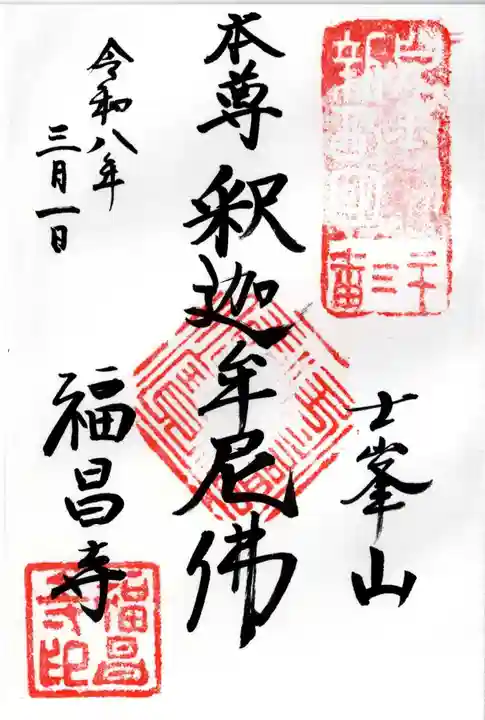 二十三番
士峯山
本尊 釈迦牟尼佛
令和八年
三月一日
福昌寺
福昌寺印